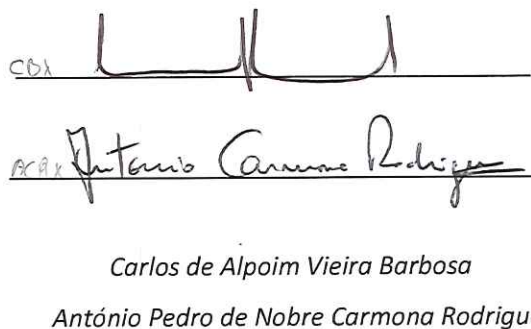 CBX
ACRX António Carmona Rodrigues
Carlos de Alpoim Vieira Barbosa
António Pedro de Nobre Carmona Rodrigu